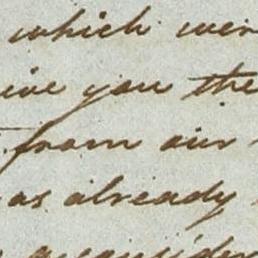 which wer
ive you the
from our
as already